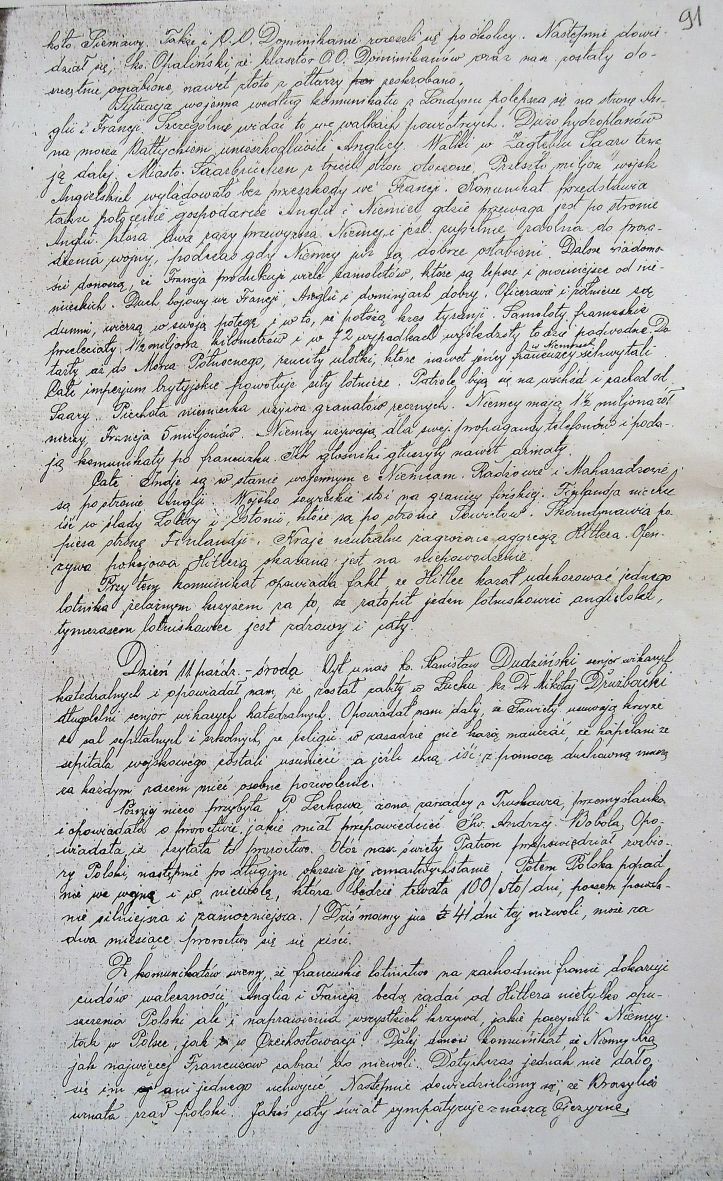 91
koło Sieniawy. Także i O.O. Dominikanie rozeszli się po okolicy. Następnie dowie-
dział się, ks. Opaliński że klasztor O.O. Dominikanów oraz nam zostały do-
szczętnie ograbione, nawet złoto z ołtarzy zeskrobano.
Sytuacja wojenna według komunikatu z Londynu polepsza się na stronę An-
glii i Francji. Szczególnie widać to we walkach powietrznych. Dużo hydroplanów
na morzu Bałtyckiem unieszkodliwili Anglicy. Walki w Zagłębiu Saary trwa-
ją dalej. Miasto Saarbrücken z trzech stron otoczone. Przeszło miljon wojsk
Angielskich wylądowało bez przeszkody we Francji. Komunikat przedstawia
także położenie gospodarcze Anglii i Niemiec gdzie przewaga jest po stronie
Anglii która dwa razy przewyższa Niemcy i jest zupełnie zdolna do prowa-
dzenia wojny, podczas gdy Niemcy już są dobrze osłabieni. Dalsze wiadomo-
ści donoszą, że Francja produkuje wiele samolotów, które są lepsze i mocniejsze od nie-
mieckich. Duch bojowy we Francji, Anglii i dominjach dobry. Oficerowie i żołnierze są
dumni, wierzą w swoją potęgę i w to, że położą kres tyranji. Samoloty francuskie
przeleciały, 1/2 miljona kilometrów i w 72 wypadkach współdziały łodzie podwodne. Do
tarły aż do Morza Północnego, rzuciły ulotki, które nawet jeńcy francuzcy w Niemczech schwytali
Całe imperjum brytyjskie powołuje siły lotnicze. Patrole biją się na wschód i zachód od
Saary. Piechota niemiecka używa granatów ręcznych. Niemcy mają 1 1/2 miljona żoł
nierzy, Francja 5 miljonów. Niemcy używają dla swej propagandy telefonów i poda-
ją komunikaty po francuzku. Ich głośniki głuszyły nawet armaty.
Całe Indje są w stanie wojennym z Niemcami. Radżowie i Maharadżowie
są po stronie Anglji. Wojsko sowieckie stoi na granicy fińskiej. Finlandja nie chce
iść w ślady Łotwy i Estonii, które są po stronie Sowietów. Skandynawia po
piera stronę Finlandji. Kraje neutralne zagrożone agresją Hitlera. Ofen-
zywa pokojowa Hitlera skazana jest na niepowodzenie.
Przy tem komunikat opowiada fakt że Hitler kazał udekorować jednego
lotnika żelaznym krzyżem za to, że zatopił jeden lotniskowiec angielski,
tymczasem lotniskowiec jest zdrowy i cały.
Dzień 11 paźdz. – środa Był u nas ks. Stanisław Dudziński senjor wikarych
katedralnych i opowiadał nam, że został zabity w Łucku ks Dr Mikołaj Drużbacki
długoletni senjor wikarych katedralnych. Opowiadał nam dalej, że Sowiety usuwają krzyże
ze sal szpitalnych i szkolnych, że religii w zasadzie nie każą nauczać, że kapelani ze
szpitala wojskowego zostali usunięci a jeśli chcą iść z pomocą duchowną muszą
za każdym razem mieć osobne pozwolenie.
Później nieco przybyła P. Lechowa żona zarządcy z Truskawca, przemyślanka
i opowiadała o proroctwie, jakie miał przepowiedzieć Św. Andrzej Bobola. Opo-
wiadała iż czytała to proroctwo. Otóż nasz święty Patron przepowiedział rozbio-
ry Polski, następnie po długim okresie jej zmartwychstanie. Potem Polska popad-
nie we wojnę i w niewolę, która będzie trwała 100/sto/dni, poczem powsta-
nie silniejsza i zamożniejsza. / Dziś mamy już 41 dni tej niewoli, może za
dwa miesiące proroctwo się ziści.
Z komunikatów wiemy, że francuskie lotnictwo na zachodnim froncie dokazuje
cudów waleczności. Anglia i Francja będą żądać od Hitlera nietylko opu-
szczenia Polski ale i naprawienia wszystkich krzywd, jakie poczynili Niemcy
tak w Polsce, jak w Czechosłowacji. Dalej donosi komunikat że Niemcy chcą
jak najwięcej Francuzów zabrać do niewoli. Dotychczas jednak nie dało
się im ani jednego uchwycić. Następnie dowiedzieliśmy się, że Brazylia
uznała rząd polski. Jakoś cały świat sympatyzuje z naszą Ojczyzną.